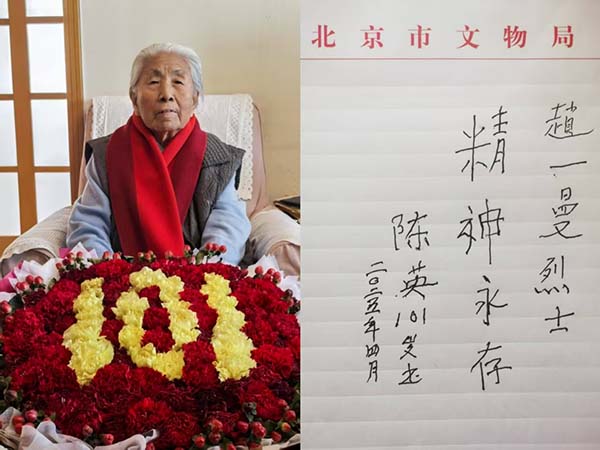 101
北京市文物局
趙一曼烈士
精神永存
陈英101岁书
二〇二五年四月